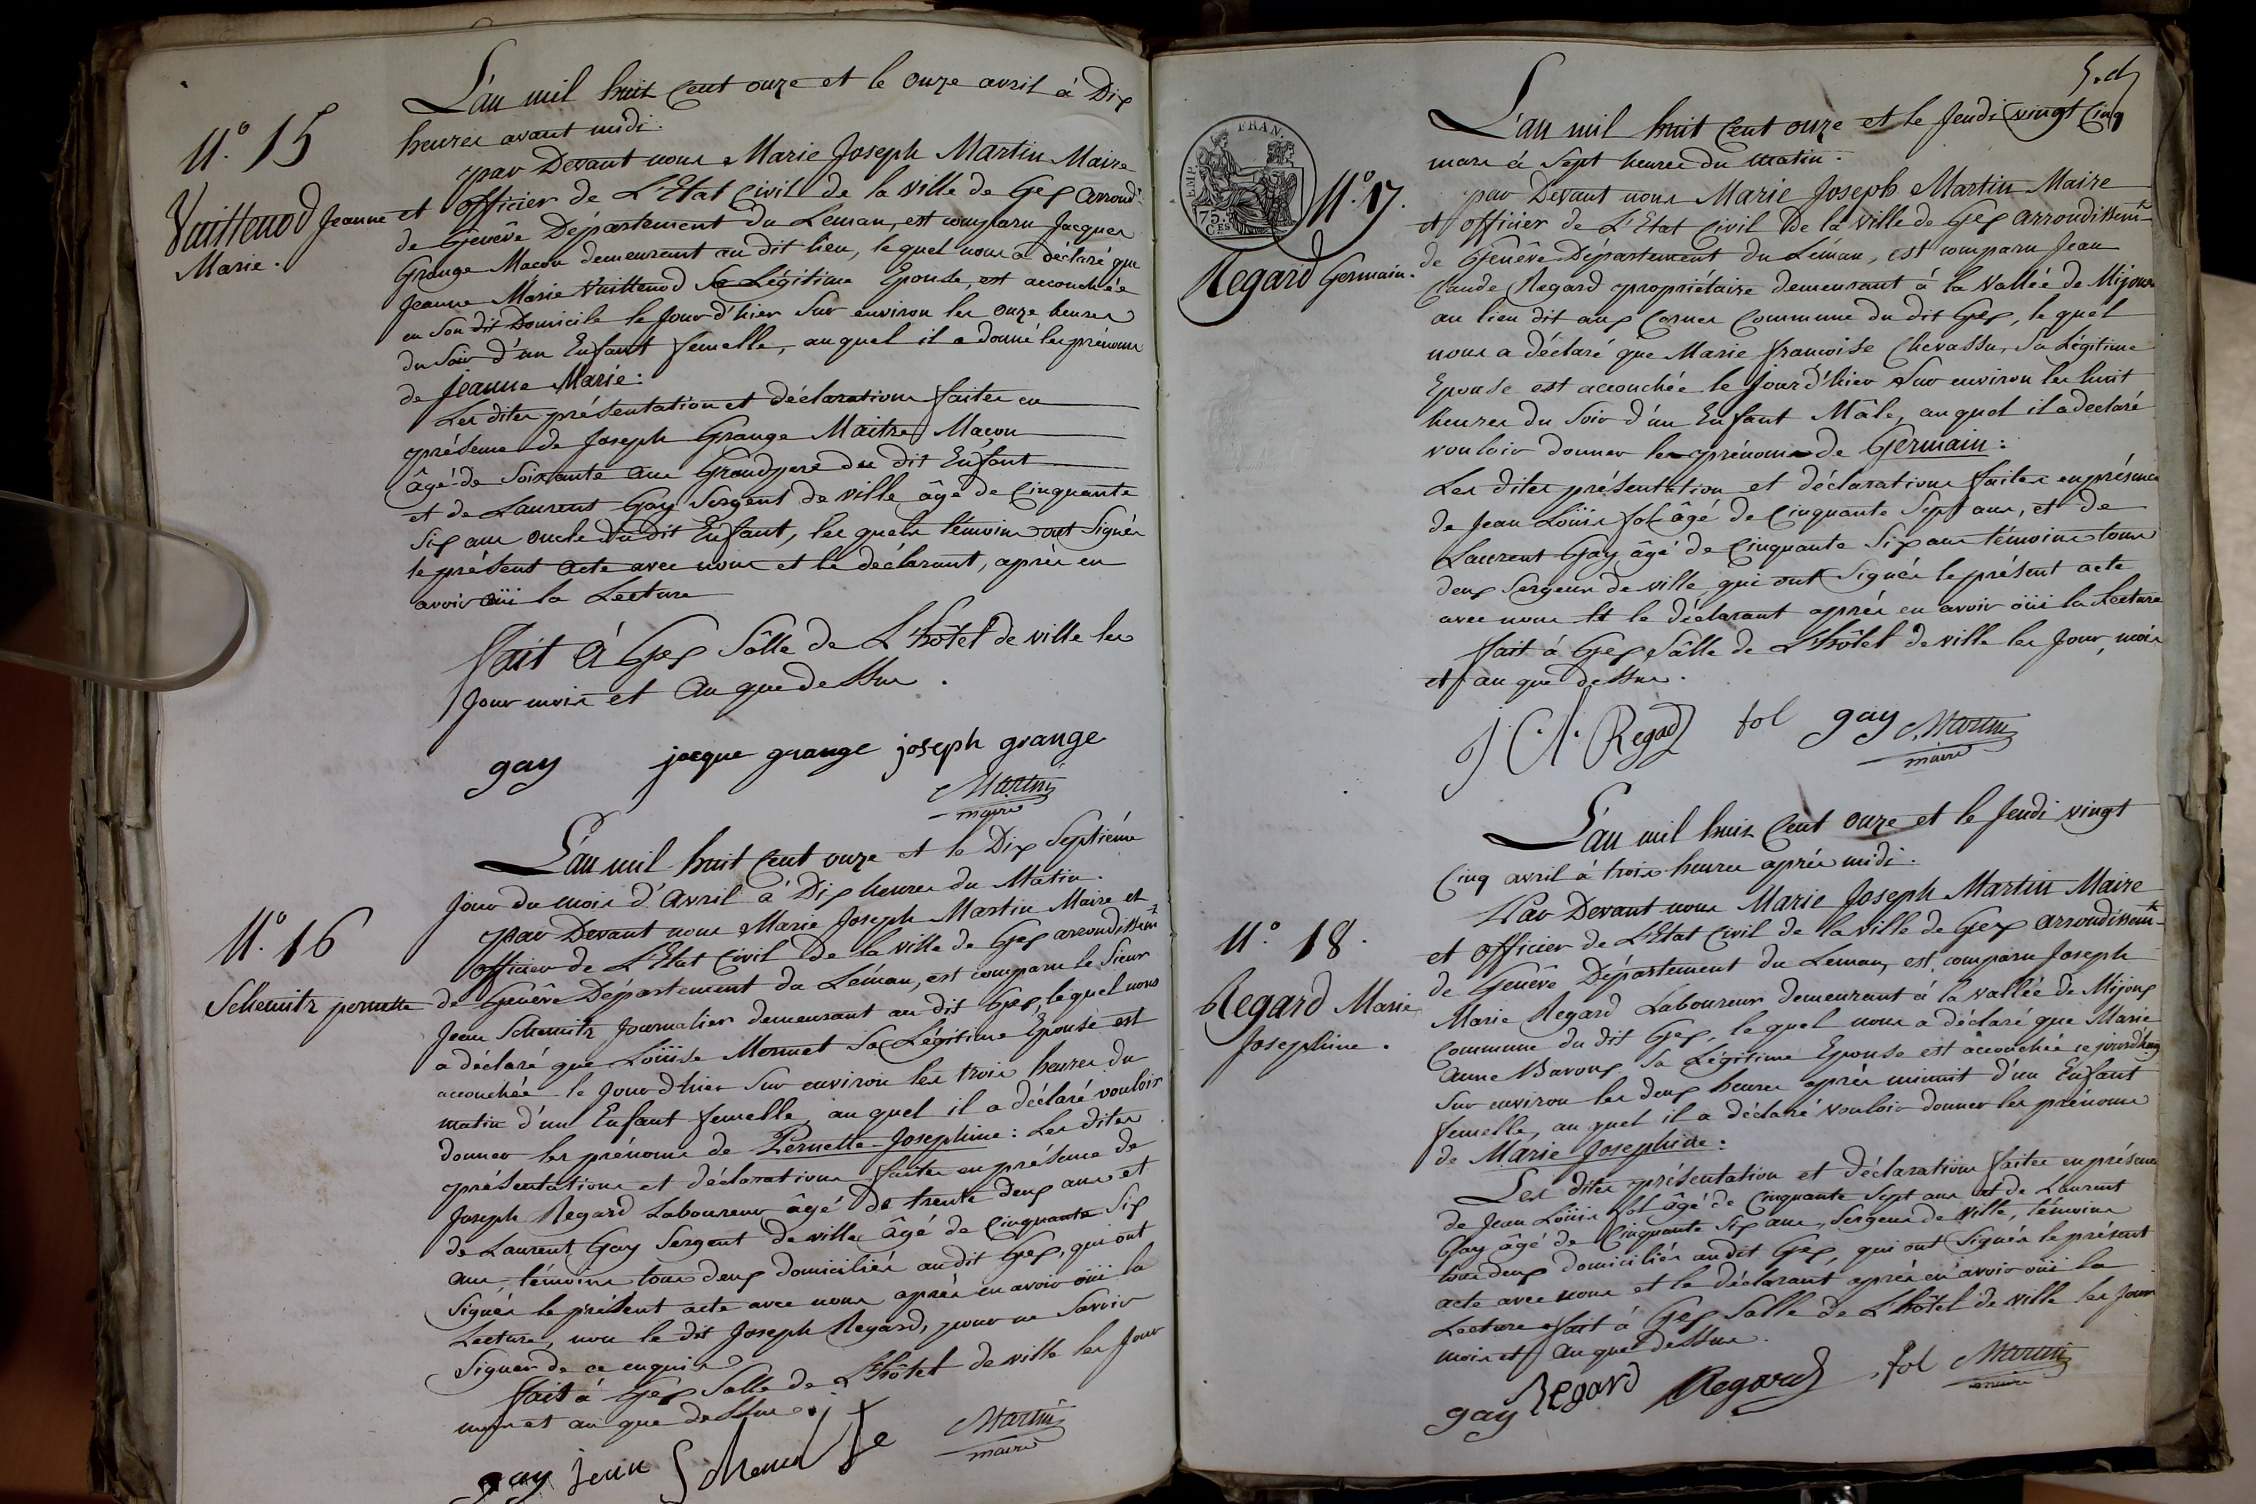 N.° 15
Vuittenod Jeanne
Marie.
L'an mil huit Cent onze et le onze avril à Dix
heures avant midi.
par Devant nous Marie Joseph Martin Maire
et officier de L'Etat Civil de la ville de Gex arrond.t
de Genêve Département du Leman, est comparu Jacques
Grange Macon demeurant au dit lieu, le quel nous a déclaré que
Jeanne Marie Vuittenod Sa Légitime Epouse, est accouchée
en Son dit Domicile le Jour d'hier Sur environ les onze heures
du Soir d'un Enfant femelle, auquel il a donné les prénoms
de Jeanne Marie:
Les dites présentation et déclarations faites en
présence de Joseph Grange Maitre Macon
âgé de Soixante ans Grandpere du dit Enfant
et de Laurent Gay Sergent de ville âgé de Cinquante
Six ans oncle du dit Enfant, les quels témoins ont Signés
le présent acte avec nous et le déclarant, après en
avoir oüi la Lecture
fait à Gex Sâlle de L'hôtel de ville les
Jour mois et an que dessus.
gay jacque grange joseph grange
Martin
maire
N.° 16
Schemitz pernette
L'an mil huit Cent onze et le Dix Septiéme
Jour du mois d'Avril à Dix heures du Matin.
par Devant nous Marie Joseph Martin Maire et
officier de L'Etat Civil de la ville de Gex arrondissem.t
de Genêve Département du Léman, est comparu le Sieur
Jean Schemitz Journalier demeurant au dit Gex, le quel nous
a déclaré que Loüise Monnet Sa Légitime Epouse est
accouchée le Jour d'hier Sur environ les trois heures du
matin d'un Enfant femelle, auquel il a déclaré vouloir
donner les prénoms de Pernette Josephine: Les dites
présentations et déclarations faites en présence de
Joseph Regard Laboureur âgé de trente deux ans et
de Laurent Gay Sergent de ville âgé de Cinquante Six
ans, témoins tous deux domiciliés audit Gex, qui ont
Signés le présent acte avec nous après en avoir oüi la
Lecture, non le dit Joseph Regard, pour ne Savoir
Signer de ce enquis
fait à Gex Salle de L'hôtel de ville les Jour
mois et an que dessus.
gay jean
Martin
maire
N.° 17.
Regard Germain.
FRAN.
75.
C.ES
L'an mil huit Cent onze et le Jeudi vingt Cinq
mars à Sept heures du matin.
par Devant nous Marie Joseph Martin Maire
et officier de L'Etat Civil De la ville de Gex arrondissem.t
de Genêve Département du Léman, est comparu Jean
Claude Regard propriétaire demeurant à la Vallée de Mijoux
au lieu dit aux Cornes Commune du dit Gex, le quel
nous a déclaré que Marie françoise Chevassu, Sa Légitime
Epouse est accouchée le Jour d'hier Sur environ les huit
heures du Soir d'un Enfant Mâle, auquel il a declaré
vouloir donner les prénoms de Germain:
Les dites présentation et déclarations faites en présence
de Jean Loüis fol âgé de Cinquante Sept ans, et de
Laurent Gay âgé de Cinquante Six ans témoins tous
deux Sergens de ville, qui ont Signés le présent acte
avec nous et le déclarant après en avoir oüi la Lecture
fait à Gex Sâlle de L'hôtel de ville les Jour, mois
et an que dessus.
J. C. Regad fol gay Martin
maire
N.° 18.
Regard Marie
Josephine.
L'an mil huit Cent onze et le Jeudi vingt
Cinq avril à trois heures après midi.
Par Devant nous Marie Joseph Martin Maire
et officier de L'Etat Civil de la ville de Gex arrondissem.t
de Genêve Département du Leman, est comparu Joseph
Marie Regard Laboureur demeurant à la Vallée de Mijoux
Commune du dit Gex, le quel nous a déclaré que Marie
Anne Baroux Sa Légitime Epouse est accouchée ce jourd'huy
Sur environ les deux heures après minuit d'un Enfant
femelle, au quel il a déclaré vouloir donner les prénoms
de Marie Josephine:
Les dites présentation et déclarations faites en présence
de Jean Loüis fol âgé de Cinquante Sept ans et de Laurent
Gay âgé de Cinquante Six ans, Sergens de ville, témoins
tous deux domiciliés audit Gex, qui ont Signés le présent
acte avec nous et le déclarant après en avoir oüi la
Lecture fait à Gex Salle de L'hôtel de ville les Jour
mois et an que dessus.
gay Regard Regard fol Martin
maire